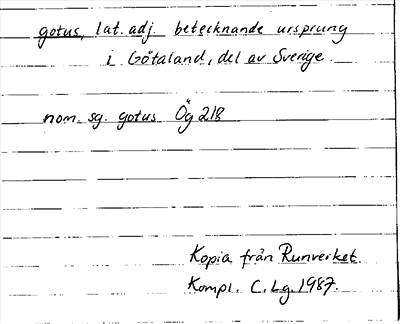 gotus, lat. adj. betecknande ursprung
i Götaland, del av Sverige.
nom. sg. gotus Ög 218
Kopia från Runverket.
Kompl. C. Lg. 1987.